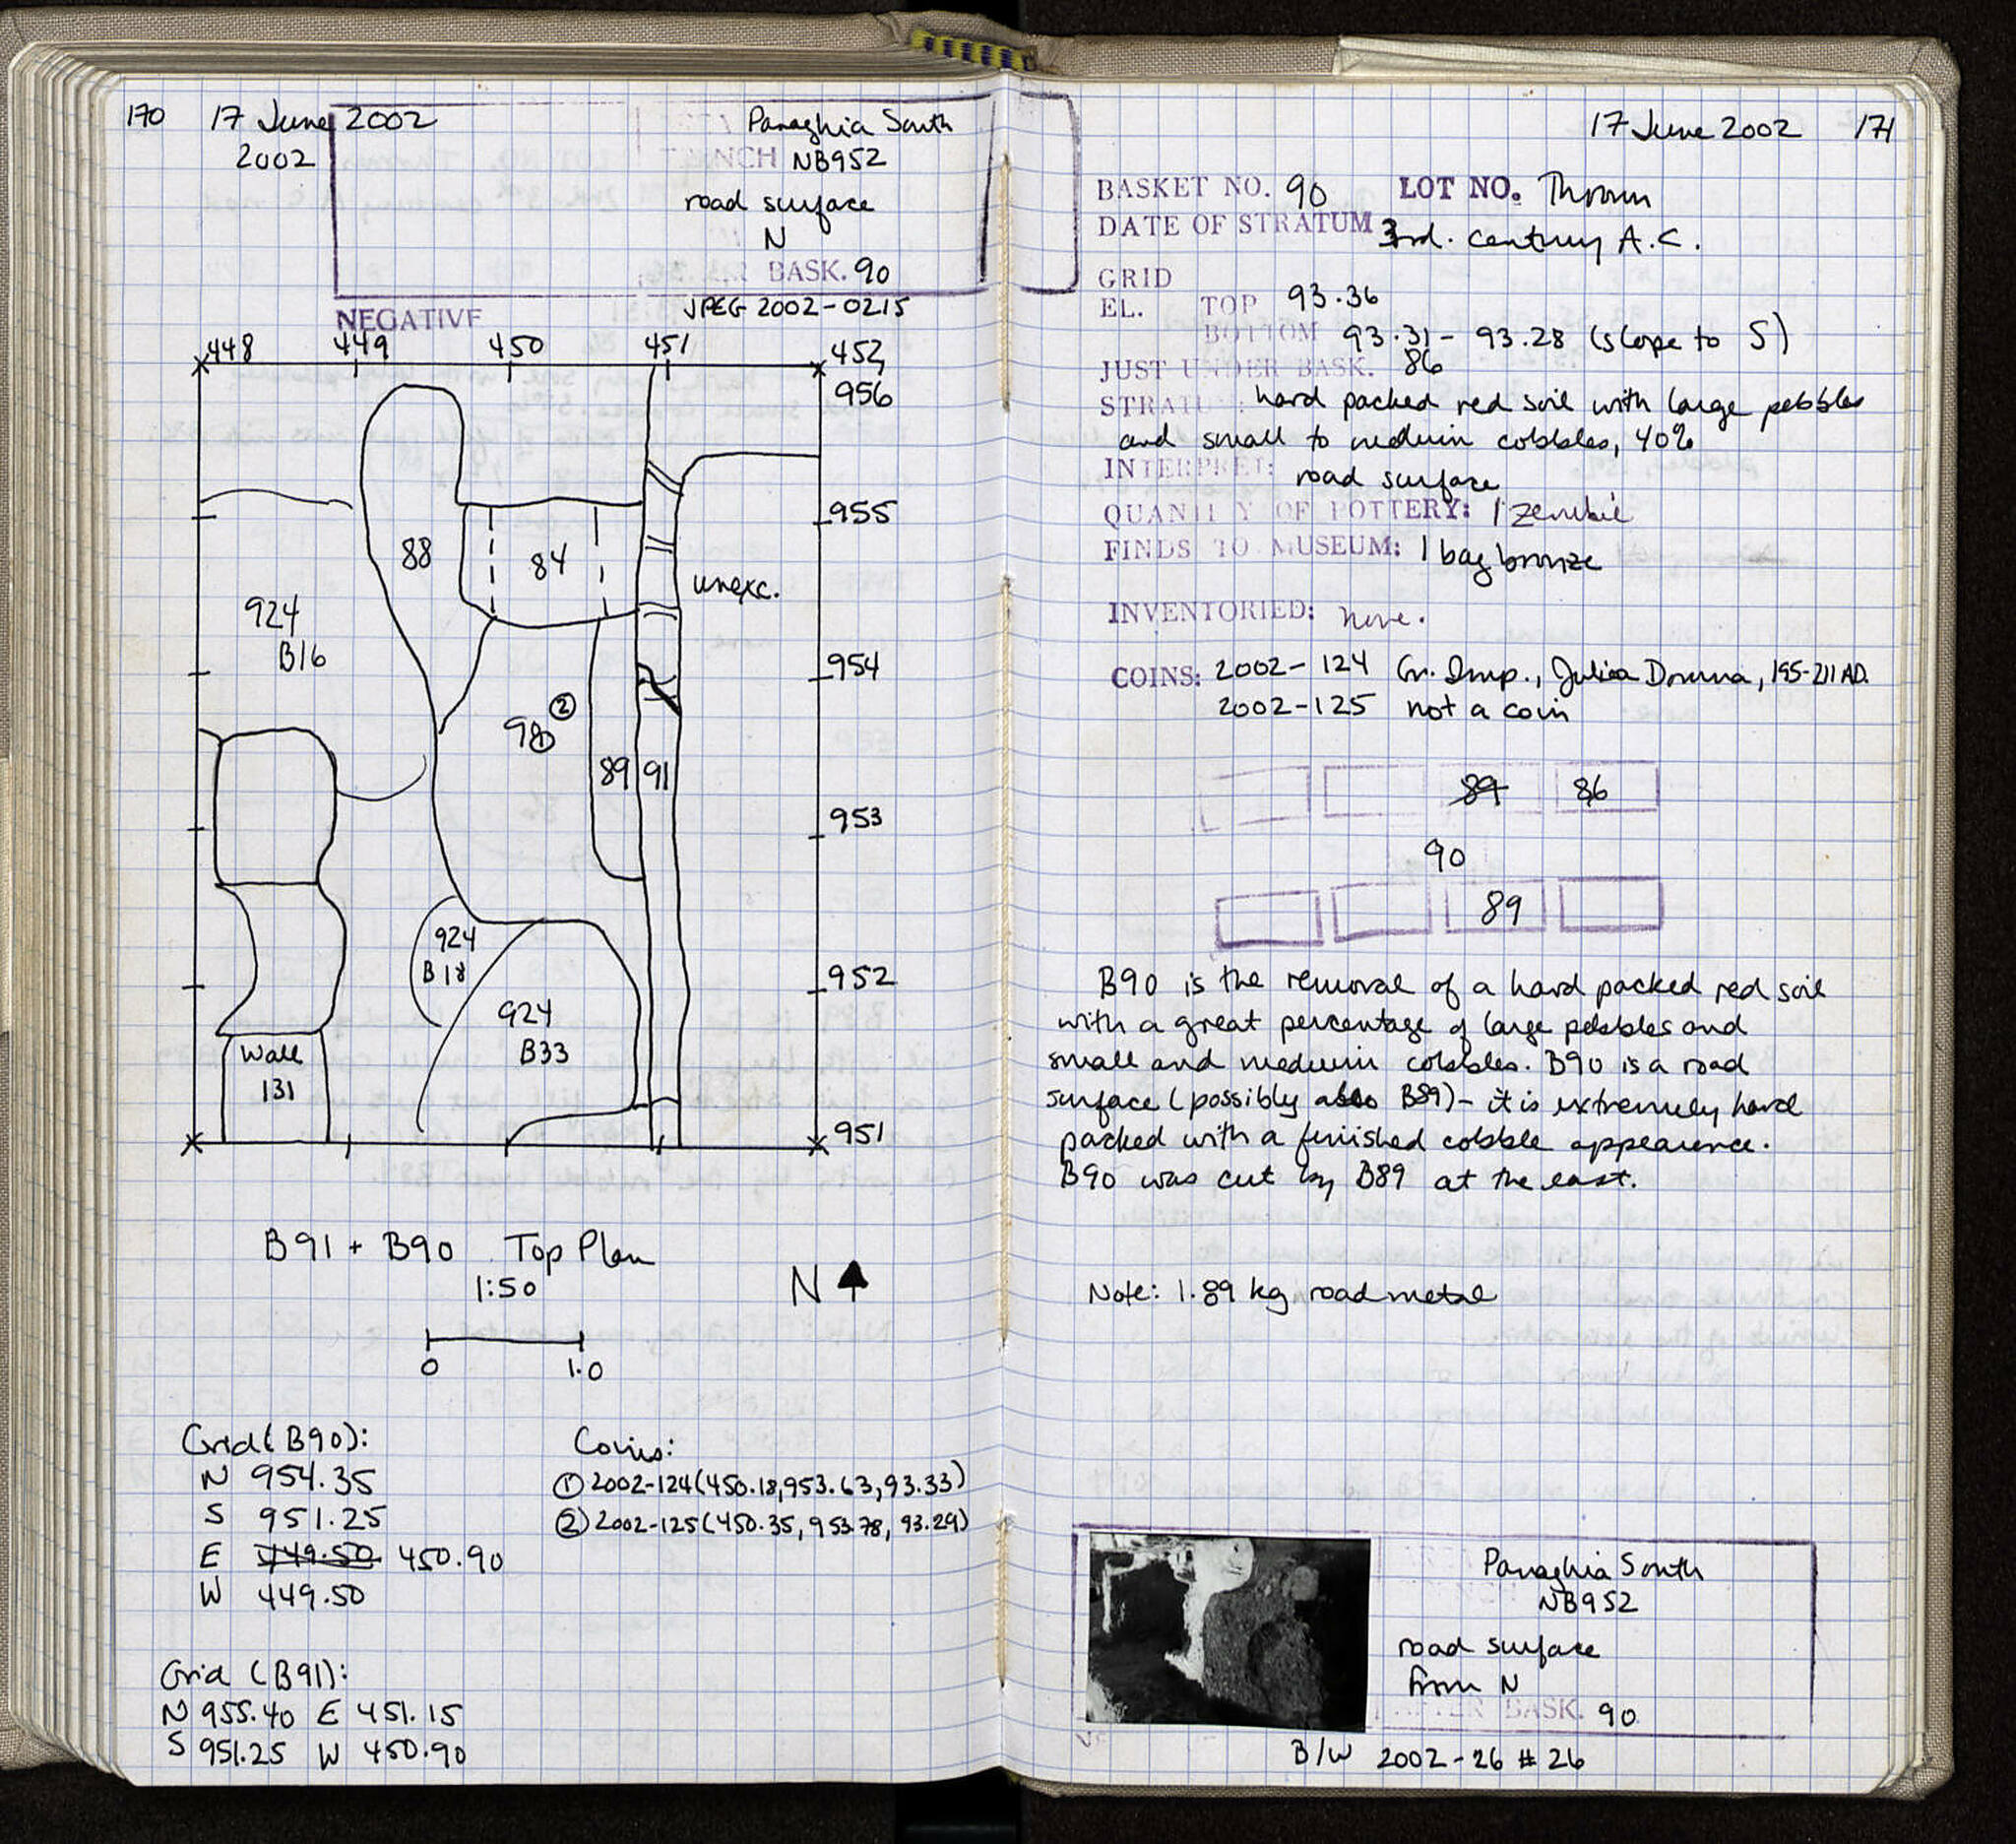 170 17 June 2002
2002
Panaghia South
TRENCH NB952
road surface
N
BASK. 90
NEGATIVE
JPEG 2002-0215
448 449 450 451 452,
956
955
954
953
952
951
88
84
unexc.
924
B16
90
②
①
89 91
924
B18
924
B33
Wall
131
B91 + B90 Top Plan
1:50
N
0 1.0
Grid (B90):
N 954.35
S 951.25
E 449.50 450.90
W 449.50
Coins:
① 2002-124 (450.18, 953.63, 93.33)
② 2002-125 (450.35, 953.78, 93.29)
Grid (B91):
N 955.40 E 451.15
S 951.25 W 450.90
17 June 2002 171
BASKET NO. 90 LOT NO. Thrown
DATE OF STRATUM 3rd. century A.C.
GRID
EL. TOP 93.36
BOTTOM 93.31 - 93.28 (slope to S)
JUST UNDER BASK. 86
STRATUM: hard packed red soil with large pebbles
and small to medium cobbles, 40%
INTERPRET: road surface
QUANTITY OF POTTERY: 1 zembie
FINDS TO MUSEUM: 1 bag bronze
INVENTORIED: none.
COINS: 2002-124 Gr. Imp., Julia Domna, 195-211 AD.
2002-125 not a coin
89 86
90
89
B90 is the removal of a hard packed red soil
with a great percentage of large pebbles and
small and medium cobbles. B90 is a road
surface (possibly also B89) - it is extremely hard
packed with a finished cobble appearence.
B90 was cut by B89 at the east.
Note: 1.89 kg road metal
Panaghia South
NB952
road surface
from N
AFTER BASK. 90
B/W 2002-26 # 26